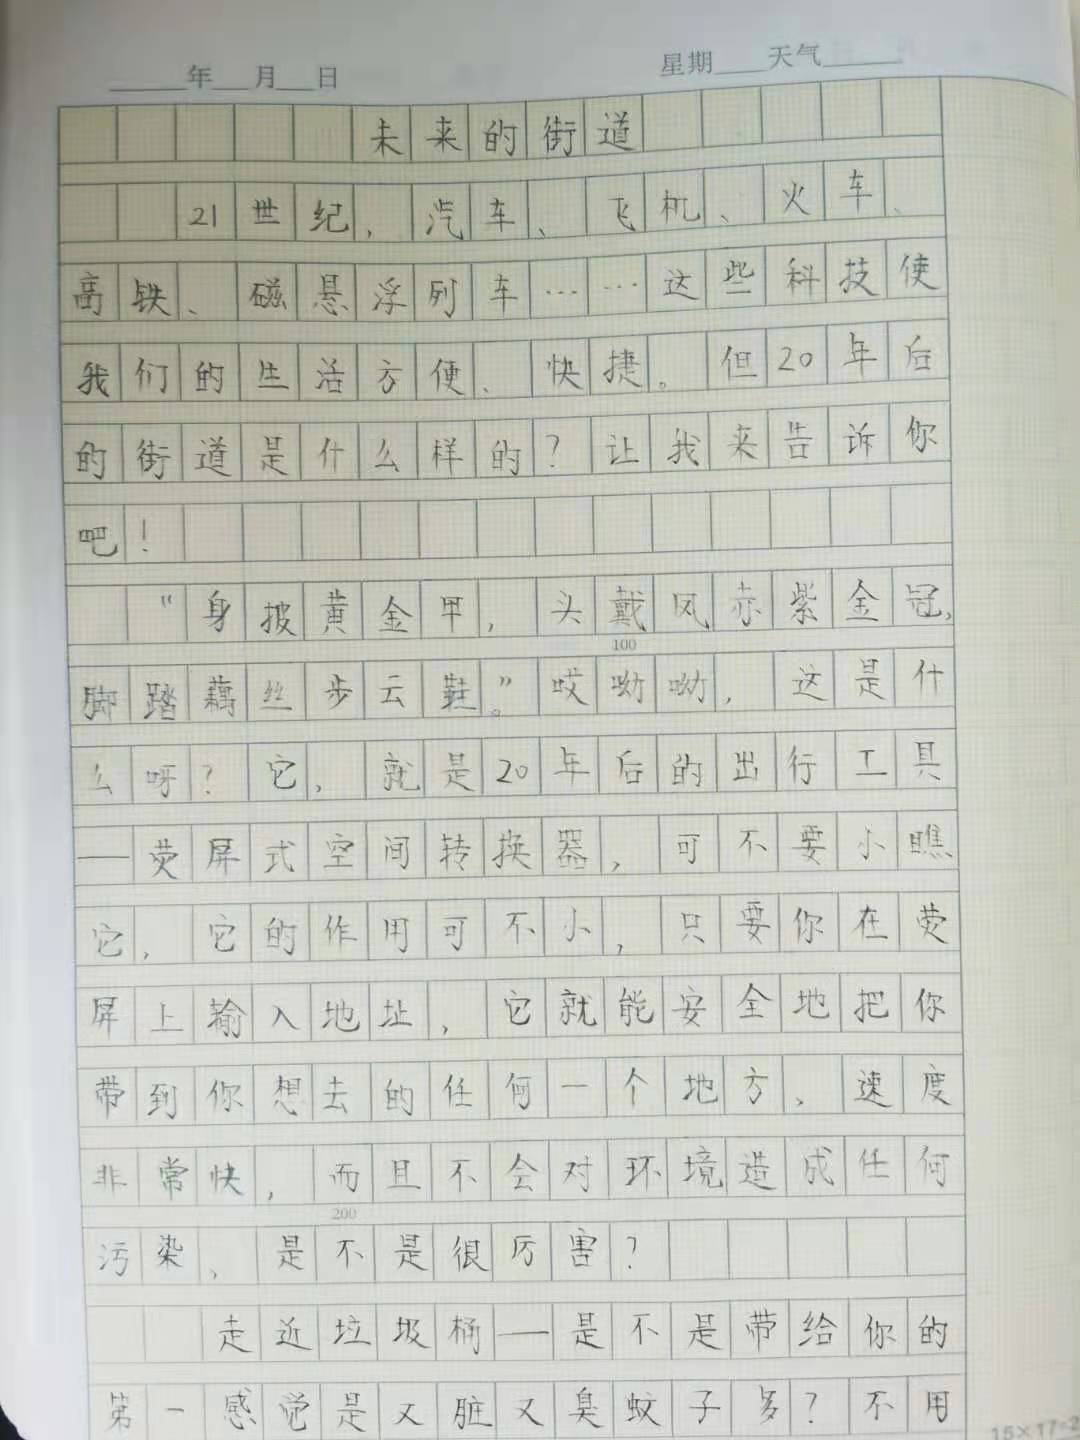 年 月 日 星期 天气
未来的街道
21世纪，汽车、飞机、火车、
高铁、磁悬浮列车……这些科技使
我们的生活方便、快捷。但20年后
的街道是什么样的？让我来告诉你
吧！
“身披黄金甲，头戴凤赤紫金冠，
100
脚踏藕丝步云鞋。”哎呦呦，这是什
么呀？它，就是20年后的出行工具
——荧屏式空间转换器，可不要小瞧
它，它的作用可不小，只要你在荧
屏上输入地址，它就能安全地把你
带到你想去的任何一个地方，速度
非常快，而且不会对环境造成任何
200
污染，是不是很厉害？
走近垃圾桶——是不是带给你的
第一感觉是又脏又臭蚊子多？不用
15×17=2